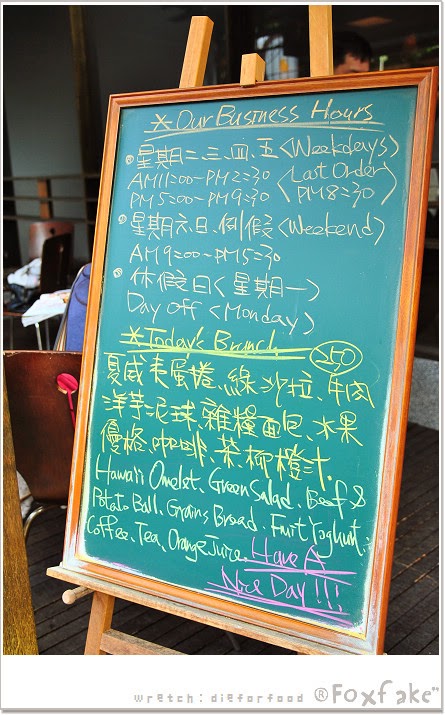 * Our Business Hours
星期二.三.四.五<Weekdays>
AM11=00~PM2=30 <Last Order>
PM5=00~PM9=30 PM8=30
星期六.日.例假<Weekend>
AM9=00~PM5=30
休假日<星期一>
Day off <Monday>
* Today's Brunch 250
夏威夷蛋捲、綠沙拉、牛肉
洋芋泥球、雜糧麵包、水果
優格、咖啡、茶、柳橙汁.
Hawaii Omelet、Green Salad、Beef &
Potato Ball、Grains Bread、Fruit Yoghurt、
Coffee、Tea、Orange Juice、Have A
Nice Day!!!
wretch:dieforfood ®Foxfake"